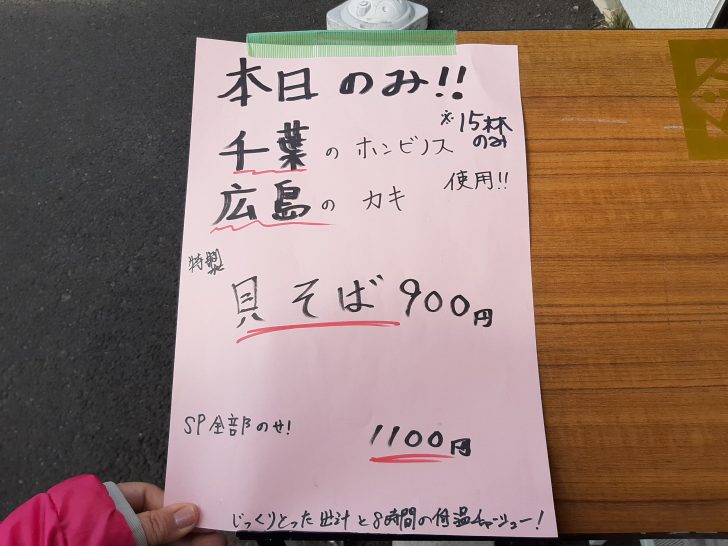 本日のみ!!
※15杯のみ
千葉のホンビノス
広島のカキ 使用!!
特製
貝そば 900円
SP全部のせ!
1100円
じっくりとった出汁と8時間の低温チャーシュー!